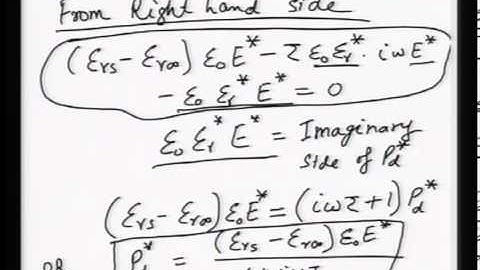 From Right hand side
(εrs − εr∞) ε0 E* − τ ε0 εr* · iω E*
− ε0 εr* E* = 0
ε0 εr* E* = Imaginary
side of Pd*
(εrs − εr∞) ε0 E* = (iωτ + 1) Pd*
OR Pd* = (εrs − εr∞) ε0 E*